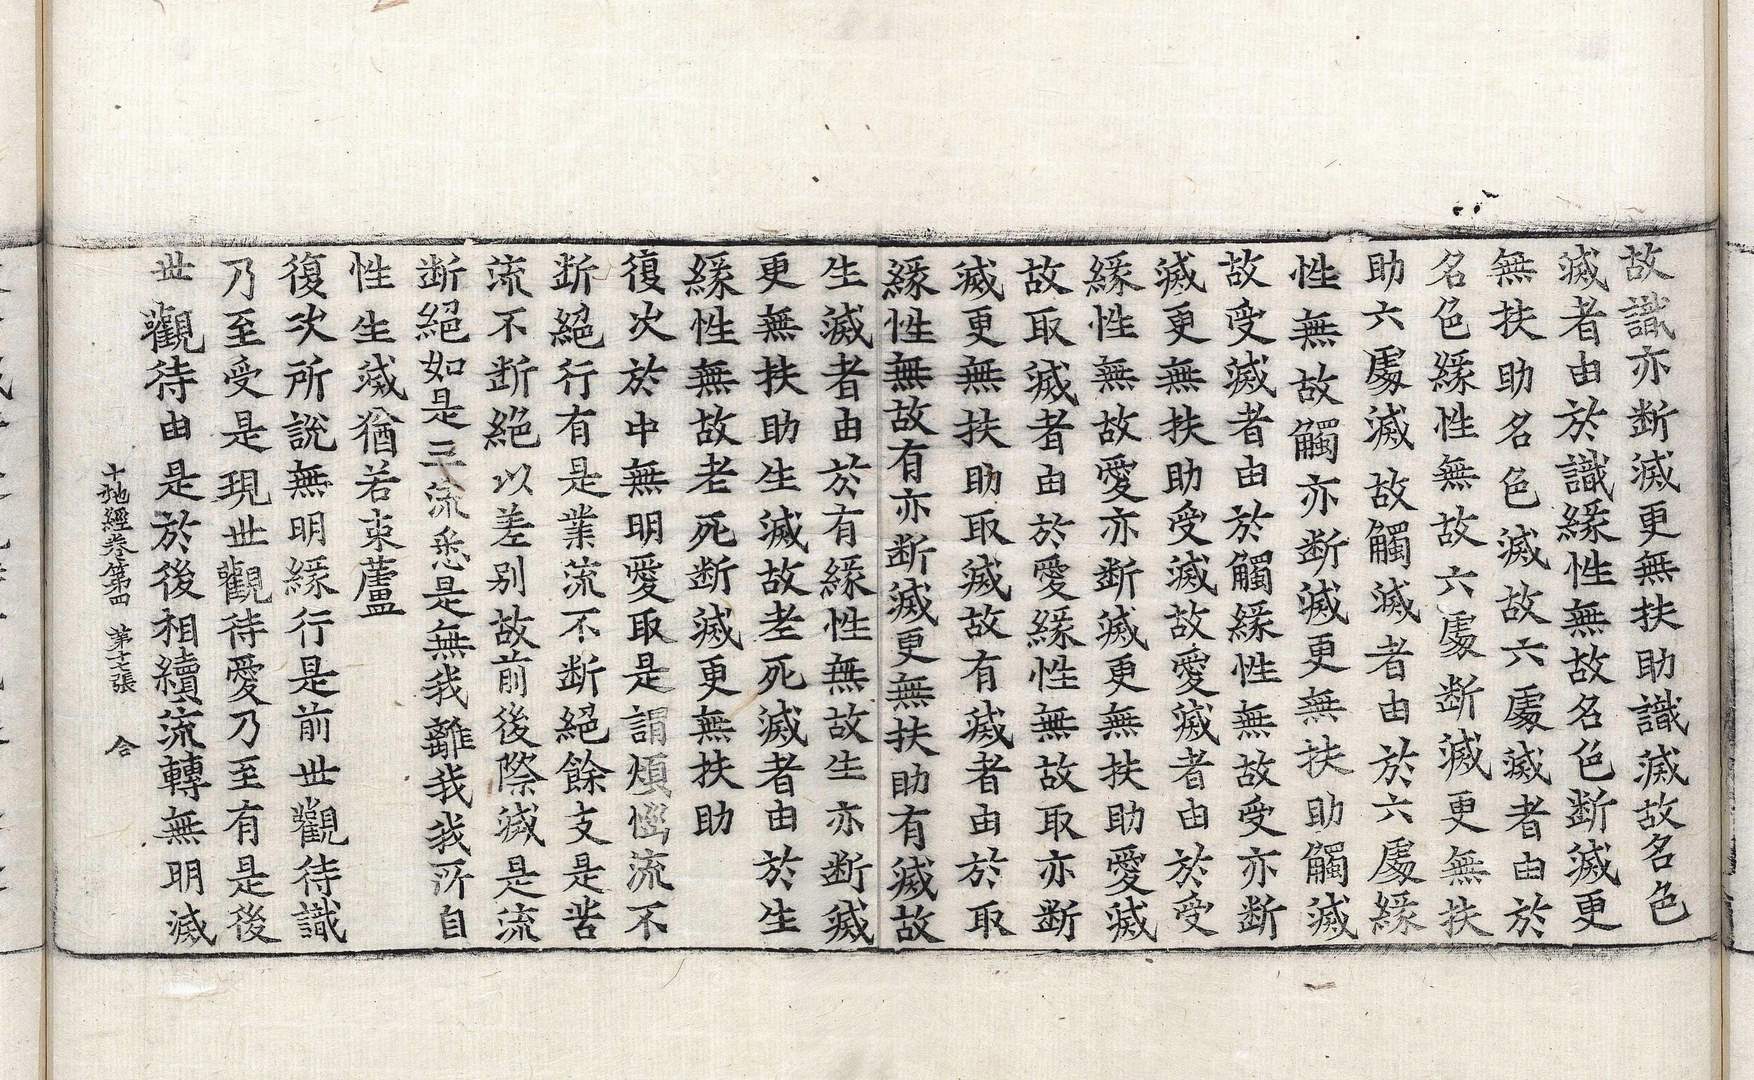 故識亦断滅更無扶助識滅故名色
滅者由於識緣性無故名色断滅更
無扶助名色滅故六處滅者由於
名色緣性無故六處断滅更無扶
助六處滅故觸滅者由於六處緣
性無故觸亦断滅更無扶助觸滅
故受滅者由於觸緣性無故受亦断
滅更無扶助受滅故愛滅者由於受
緣性無故愛亦断滅更無扶助愛滅
故取滅者由於愛緣性無故取亦断
滅更無扶助取滅故有滅者由於取
緣性無故有亦断滅更無扶助有滅故
生滅者由於有緣性無故生亦断滅
更無扶助生滅故老死滅者由於生
緣性無故老死断滅更無扶助
復次於中無明愛取是謂煩惱流不
断絕行有是業流不断絕餘支是苦
流不断絕以差別故前後際滅是流
断絕如是三流悉是無我離我我所自
性生滅猶若束蘆
復次所說無明緣行是前世觀待識
乃至受是現世觀待愛乃至有是後
世觀待由是於後相續流轉無明滅
十地經卷第四 第十七張 合